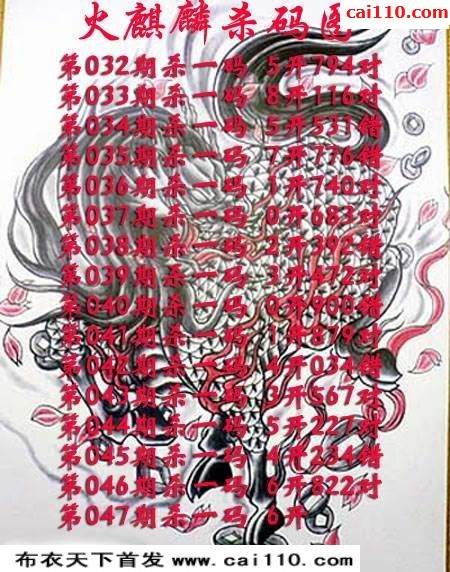 cai110.com
火麒麟杀码图
第032期杀一码 5开794对
第033期杀一码 8开116对
第034期杀一码 5开531错
第035期杀一码 7开776错
第036期杀一码 1开740对
第037期杀一码 0开683对
第038期杀一码 2开392错
第039期杀一码 3开472对
第040期杀一码 0开900错
第041期杀一码 1开879对
第042期杀一码 4开034错
第043期杀一码 3开567对
第044期杀一码 5开227对
第045期杀一码 4开234错
第046期杀一码 6开822对
第047期杀一码 6开
布衣天下首发 www.cai110.com